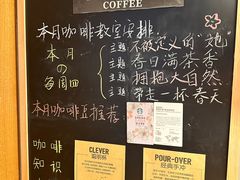 COFFEE
本月咖啡教室安排
本月 主题 不被定义的"她"
の 主题 春日满茶香
每周四 主题 拥抱大自然
主题 带走一杯春天
本月咖啡豆推荐:
咖啡
知识
CLEVER
聪明杯
POUR-OVER
经典手冲